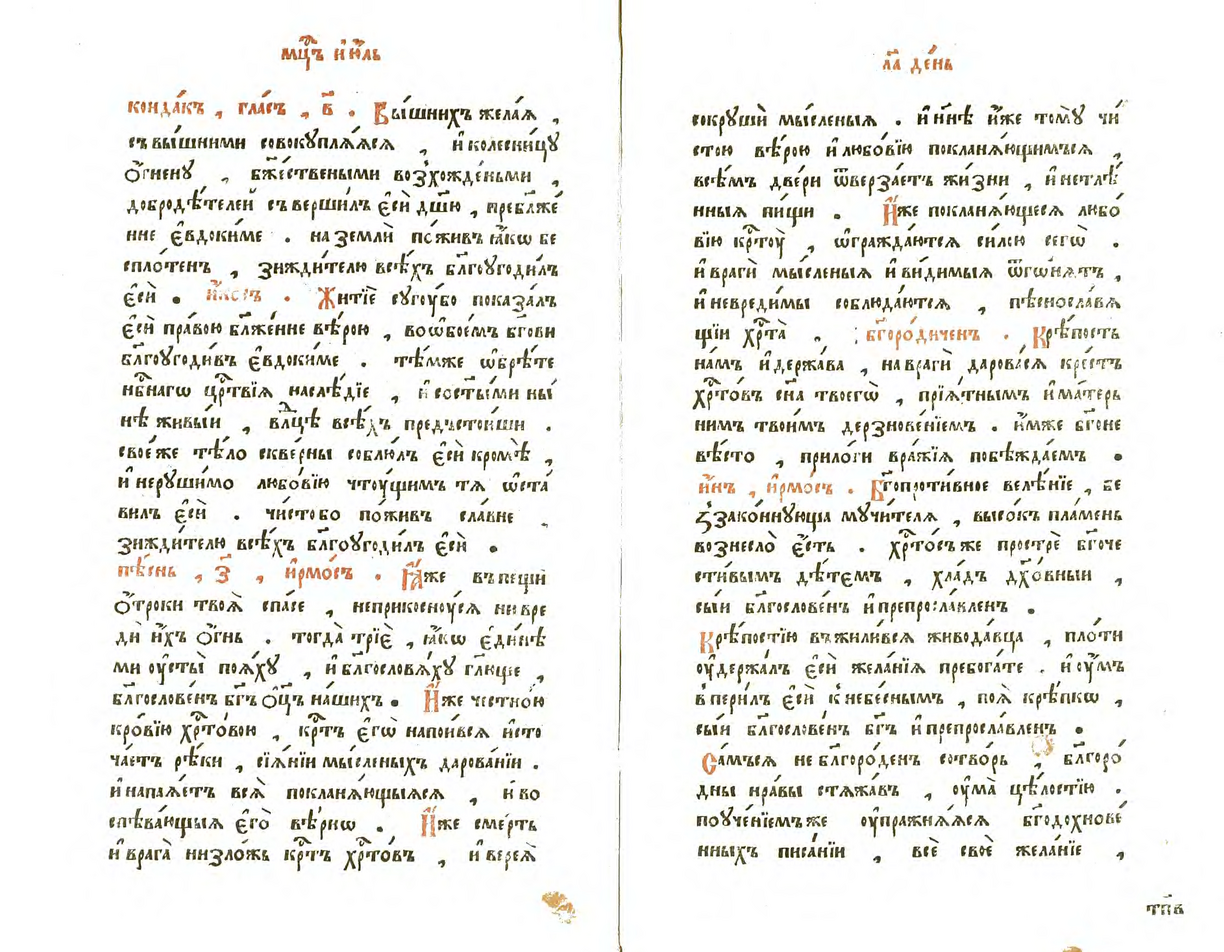 мц҃ъ і҆ю҆ль
конда́къ , гла́съ , в҃ . Вы́шнихъ жела́ѧ ,
съвы́шними совокꙋплѧ́ѧсѧ , и҆ колесни́цꙋ
ѻ҆́гненꙋ , бж҃е́ствеными возхожде́ньми ,
добродѣ́телей съверши́лъ є҆сѝ дш҃ю , пребл҃же́
нне є҆вдоки́ме . на землѝ пожи́въ ꙗ҆́кѡ бе
спло́тенъ , зижди́телю всѣ́хъ бл҃гоꙋгоди́лъ
є҆сѝ . И҆́косъ . Житїѐ сꙋгꙋ́бо показа́лъ
є҆сѝ пра́вою бл҃же́нне вѣ́рою , воѻ҆бое́мъ бг҃ови
бл҃гоꙋгоди́въ є҆вдоки́ме . тѣ́мже ѡ҆брѣ́те
нбⷭ҇нагѡ црⷭ҇твїѧ наслѣ́дїе , и҆ сост҃ы́ми ны́
нѣ живы́й , влⷣцѣ всѣ́хъ предъстои́ши .
свое́же тѣ́ло скве́рны соблю́лъ є҆сѝ кромѣ̀ ,
и҆ нерꙋши́мо любо́вїю чтꙋ́щимъ тѧ ѡ҆ста́
вилъ є҆сѝ . чи́стобо пожи́въ сла́вне
зижди́телю всѣ́хъ бл҃гоꙋгоди́лъ є҆сѝ .
пѣ́снь , з҃ , і҆рмо́съ . Ꙗ҆́же въпещѝ
ѻ҆́троки твоѧ̀ спа́се , неприкоснꙋ́сѧ нивре
дѝ и҆́хъ ѻ҆́гнь . тогда̀ трїѐ , ꙗ҆́кѡ є҆ди́нѣ
ми ᲂу҆сты̀ поѧ́хꙋ , и҆ бл҃гословѧ́хꙋ гл҃юще ,
бл҃гослове́нъ бг҃ъ ѻ҆ц҃ъ на́шихъ . И҆́же честно́ю
кро́вїю хрⷭ҇то́вою , крⷭ҇тъ є҆гѡ̀ напои́всѧ и҆сто
ча́етъ рѣ́ки , сїѧ́нїи мы́сленыхъ дарова́нїи .
и҆ напаѧ́етъ всѧ̀ покланѧ́ющыѧсѧ , и҆ во
спѣва́ющыѧ є҆го̀ вѣ́рнѡ . И҆́же сме́рть
и҆ врага̀ низложь крⷭ҇тъ хрⷭ҇то́въ , и҆ вереѧ̀
л҃а де́нь
сокрꙋшѝ мы́сленыѧ . и҆ нн҃ѣ и҆́же томꙋ̀ чи́
стою вѣ́рою и҆ любо́вїю покланѧ́ющимъсѧ ,
всѣ́мъ двери ѿверза́етъ жи́зни , и҆ нетлѣ́
нныѧ пи́щи . И҆́же покланѧ́ющесѧ любо́
вїю крⷭ҇тꙋ̀ , ѡ҆гражда́ютсѧ си́лою сегѡ̀ .
и҆ врагѝ мы́сленыѧ и҆ ви́димыѧ ѿгѡнѧ́тъ ,
и҆ невреди́мы соблюда́ютсѧ , пѣснословѧ
щїи хрⷭ҇та̀ . бг҃оро́диченъ . Крѣ́пость
на́мъ и҆ держа́ва , на врагѝ дарова́сѧ кре́стъ
хрⷭ҇то́въ сн҃а твоегѡ̀ , прїѧ́тнымъ и҆ ма́терь
нимъ твои́мъ дерзнове́нїемъ . и҆́мже бг҃оне
вѣ́сто , прило́ги вра́жїѧ побѣжда́емъ .
и҆́нъ , і҆рмо́съ . Бг҃опроти́вное велѣ́нїе , бе
ззако́ннꙋюща мꙋчи́телѧ , высо́къ пла́мень
вознесло̀ є҆́сть . хрⷭ҇то́съже прострѐ бг҃оче
сти́вымъ дѣ́темъ , хла́дъ дх҃о́вныи ,
сы́и бл҃гослове́нъ и҆ препросла́вленъ .
Крѣ́постїю въжили́всѧ живода́вца , пло́ти
ᲂу҆держа́лъ є҆сѝ жела́нїѧ пребога́те . и҆ ᲂу҆́мъ
в̾пери́лъ є҆сѝ к̾ небе́снымъ , поѧ̀ крѣ́пкѡ ,
сы́и бл҃гослове́нъ бг҃ъ и҆ препросла́вленъ .
Са́мъсѧ не бл҃горо́денъ сотво́рь , бл҃горо́
дны нра́вы стѧжа́въ , ᲂу҆ма̀ цѣ́лостїю .
поꙋче́нїемъже ᲂу҆пражнѧ́ѧсѧ бг҃одохнове́
нныхъ писа́нїи , всѐ своѐ жела́нїе ,
тп҃в